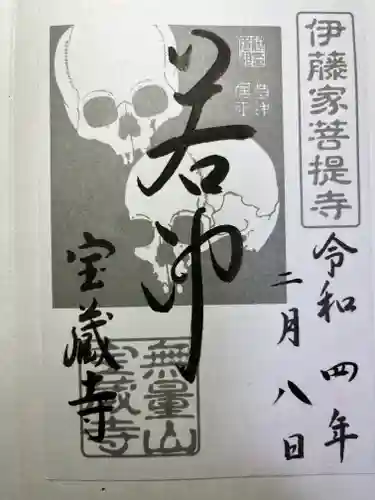 伊藤家菩提寺
令和四年
二月八日
若冲
宝蔵寺
無量山
宝蔵寺